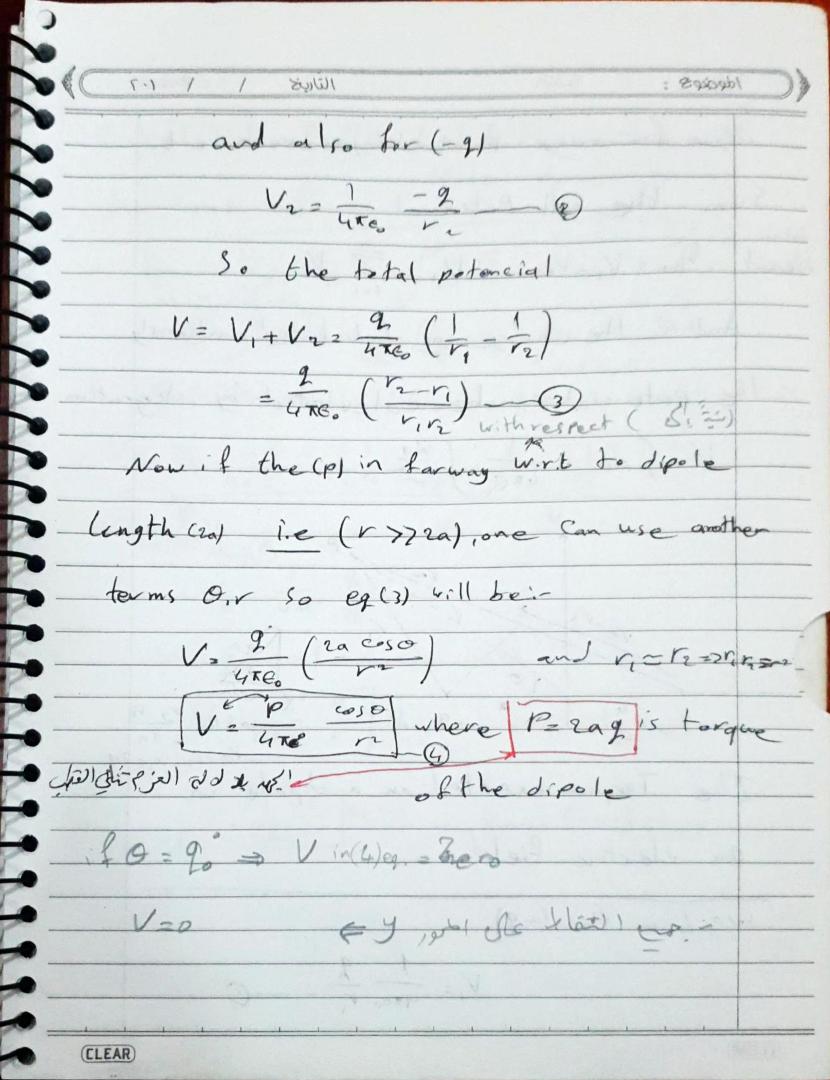 الموضوع : التاريخ / / ٢٠١
and also for (-q)
V₂ = 1/4πε₀ -q/r₂ —— ②
So the total potencial
V = V₁ + V₂ = q/4πε₀ (1/r₁ - 1/r₂)
= q/4πε₀ (r₂-r₁/r₁r₂) —— ③
with respect (
Now if the (p) in farway w.r.t to dipole
length (2a) i.e (r >> 2a), one can use another
terms θ,r so eq (3) will be:-
V = q/4πε₀ (2a cosθ/r²) and r₁ ≃ r₂ ⇒ r₁r₂ = r²
V = p/4πε cosθ/r² —④ where P = 2aq is torque
الجهد بدلالة العزم ثنائي القطب of the dipole
if θ = 90° ⇒ V in (4) eq. = Zero
V=0 ⇐ y جميع النقاط على المحور
CLEAR